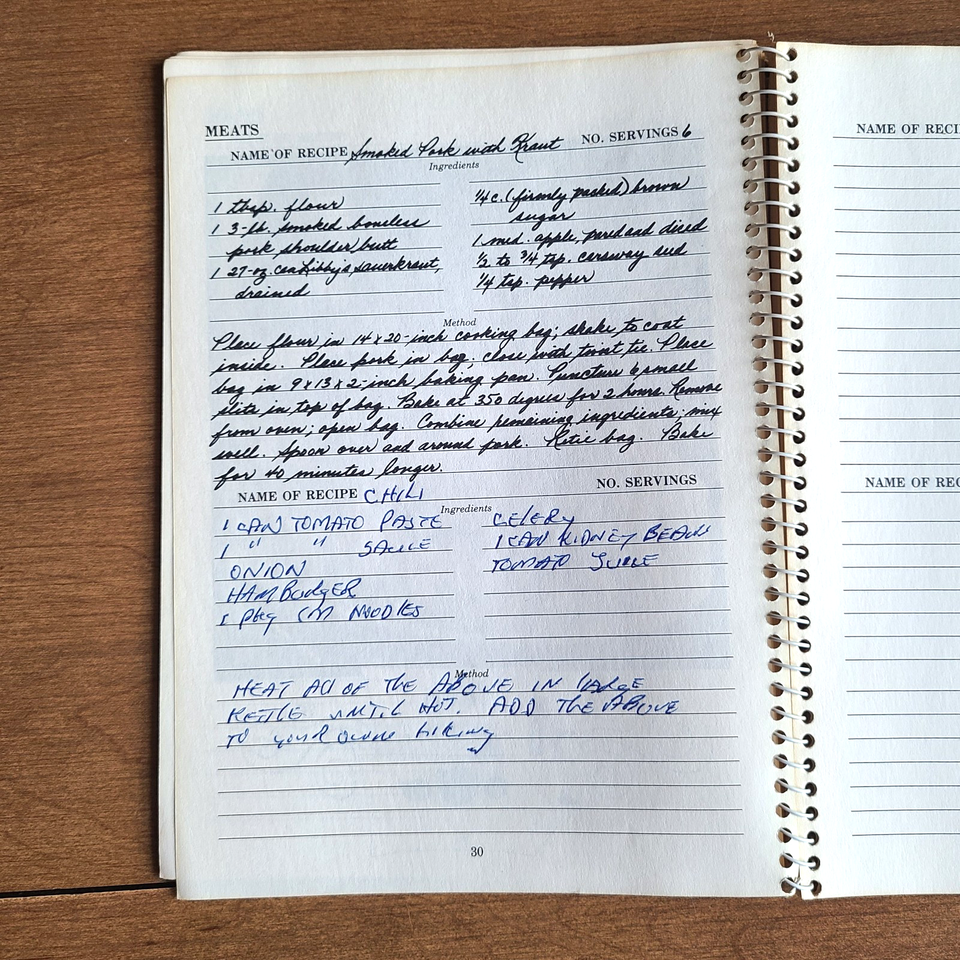 MEATS
NAME OF RECIPE Smoked Pork with Kraut NO. SERVINGS 6
Ingredients
1 tbsp. flour
1 3-lb. smoked boneless
pork shoulder butt
1 27-oz. can Libby's sauerkraut,
drained
1/4 c. (firmly packed) brown
sugar
1 med. apple, pared and diced
1/2 to 3/4 tsp. caraway seed
1/4 tsp. pepper
Method
Place flour in 14 x 20-inch cooking bag; shake to coat
inside. Place pork in bag, close with twist tie. Place
bag in 9 x 13 x 2-inch baking pan. Puncture 6 small
slits in top of bag. Bake at 350 degrees for 2 hours. Remove
from oven; open bag. Combine remaining ingredients; mix
well. Spoon over and around pork. Retie bag. Bake
for 40 minutes longer.
NAME OF RECIPE CHILI NO. SERVINGS
Ingredients
1 CAN TOMATO PASTE
1 " " SAUCE
ONION
HAMBURGER
1 pkg SM NOODLES
CELERY
1 CAN KIDNEY BEANS
TOMATO JUICE
Method
HEAT All OF THE ABOVE IN LARGE
KETTLE UNTIL HOT. ADD THE ABOVE
TO your own liking
30
NAME OF RECI
NAME OF REC